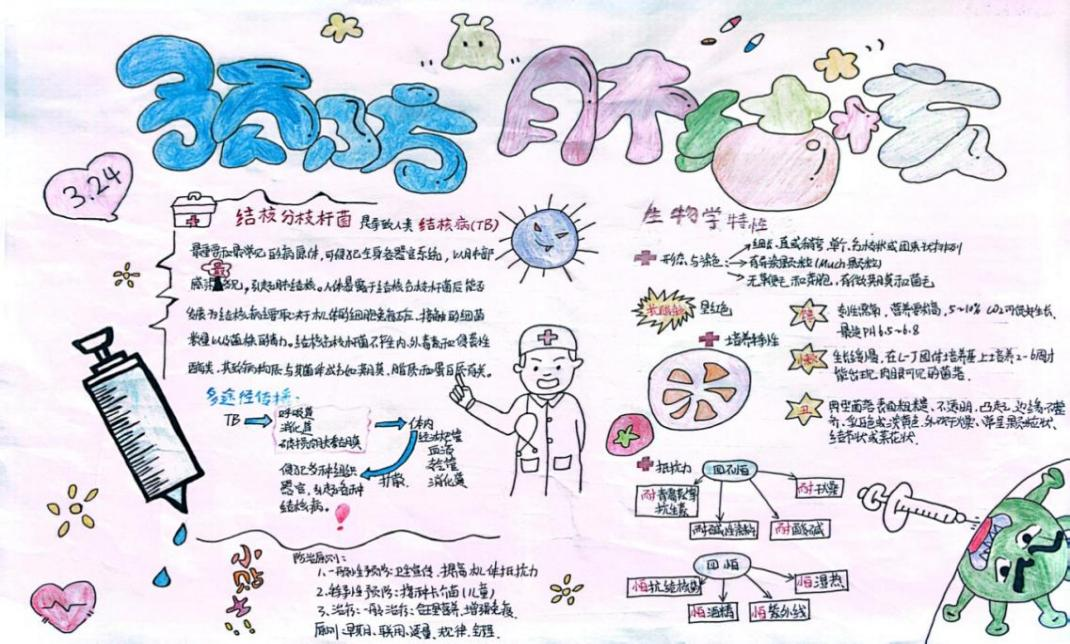 预防肺结核
3.24
结核分枝杆菌 是导致人类 结核病(TB)
最重要和最常见的病原体,可侵犯全身各器官系统,以肺部
感染多见,引起肺结核。人体暴露于结核分枝杆菌后能否
发展为结核病主要取决于机体的细胞免疫状态、接触的细菌
数量以及菌株的毒力。结核分枝杆菌不产生内、外毒素和侵袭性
酶类,其致病物质与其菌体成分如荚膜、脂质和蛋白质有关。
多途径传播:
TB
呼吸道
消化道
破损的皮肤黏膜
体内
经淋巴管
血液
支气管
消化道
扩散
侵犯多种组织
器官,引起各种
结核病。
小贴士
防治原则:
1.一般性预防:卫生宣传、提高机体抵抗力
2.特异性预防:接种卡介苗(儿童)
3.治疗:一般治疗:合理营养、增强免疫
原则:早期、联用、适量、规律、全程。
生物学特性
形态与染色:
细长、直或稍弯,单个、分枝状或团束状排列
有异染颗粒(Much颗粒)
无鞭毛和芽胞,有微荚膜和菌毛
抗酸染
呈红色
培养特性
专性需氧,营养要求高,5~10% CO2可促生长,
最适pH 6.5~6.8
生长缓慢,在L-J固体培养基上培养2-6周才
能出现肉眼可见的菌落。
丑
典型菌落表面粗糙、不透明、凸起、边缘不整
齐、乳白色或淡黄色,外观干燥、常呈颗粒状、
结节状或菜花状。
抵抗力
四不怕
耐青霉素等
抗生素
耐碱性染料
耐酸碱
耐干燥
四怕
怕抗结核药
怕酒精
怕紫外线
怕湿热